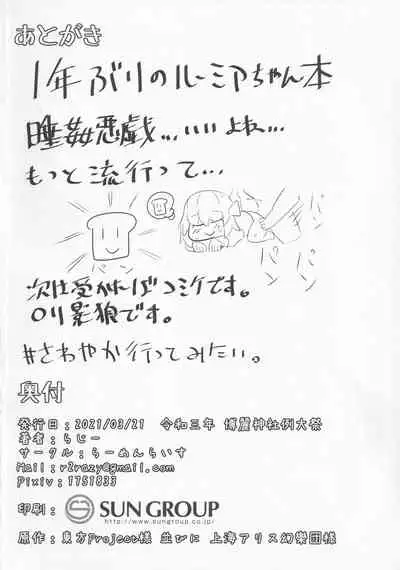 あとがき
1年ぶりのルーミアちゃん本
睡姦悪戯...いいよね...
もっと流行って...
パン
パン
次は受かればコミケです。
ロリ影狼です。
#さわやか行ってみたい。
奥付
発行日:2021/03/21 令和三年 博麗神社例大祭
著者:らじー
サークル:らーめんらいす
Mail:r2razy@gmail.com
Pixiv:1751833
印刷: SUN GROUP
http://www.sungroup.co.jp/
原作:東方Project様 並びに 上海アリス幻樂団様